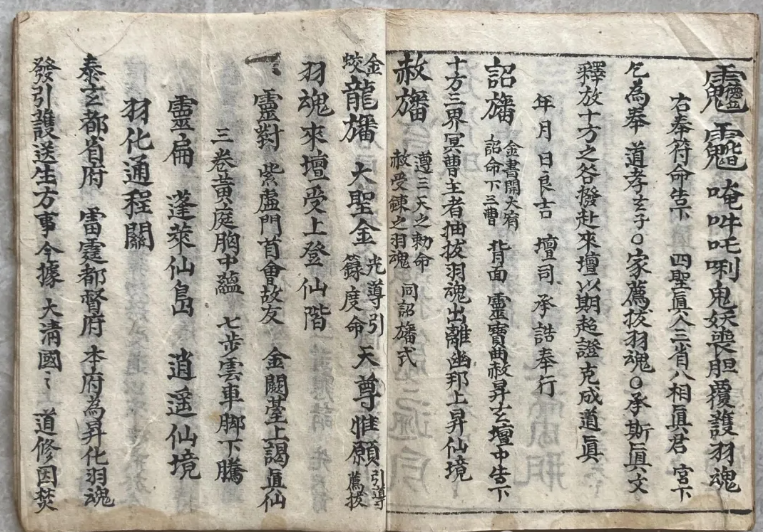 唵吽吒唎鬼妖喪胆覆護羽魂
右奉符命告下 四聖眞人三省八相眞君 宮下
乞為奉 道孝玄子〇家薦拔羽魂〇承斯眞文
釋放十方之谷撥赴來壇以期超證克成道眞
年 月 日良吉 壇司 承誥奉行
詔旛 金書開大宥 詔命下三曹 背面 靈寶曲赦昇玄壇中告下
十方三界冥曹主者抽拔羽魂出離幽邦上昇仙境
赦旛 遵三天之勅命 赦受鍊之羽魂 同詔旛式
金蛟龍旛 大聖金光導引 籙度命 天尊惟願 引導薦拔
羽魂來壇受上登仙階
一 靈對 紫虛門首會故友 金闕臺上謁眞仙
三卷黃庭胸中蘊 七步雲車脚下騰
靈扁 蓬萊仙島 逍遥仙境
羽化通程關
泰玄都省府 雷霆都督府 本府為昇化羽魂
發引護送生方事今據 大清國〻 道修因焚